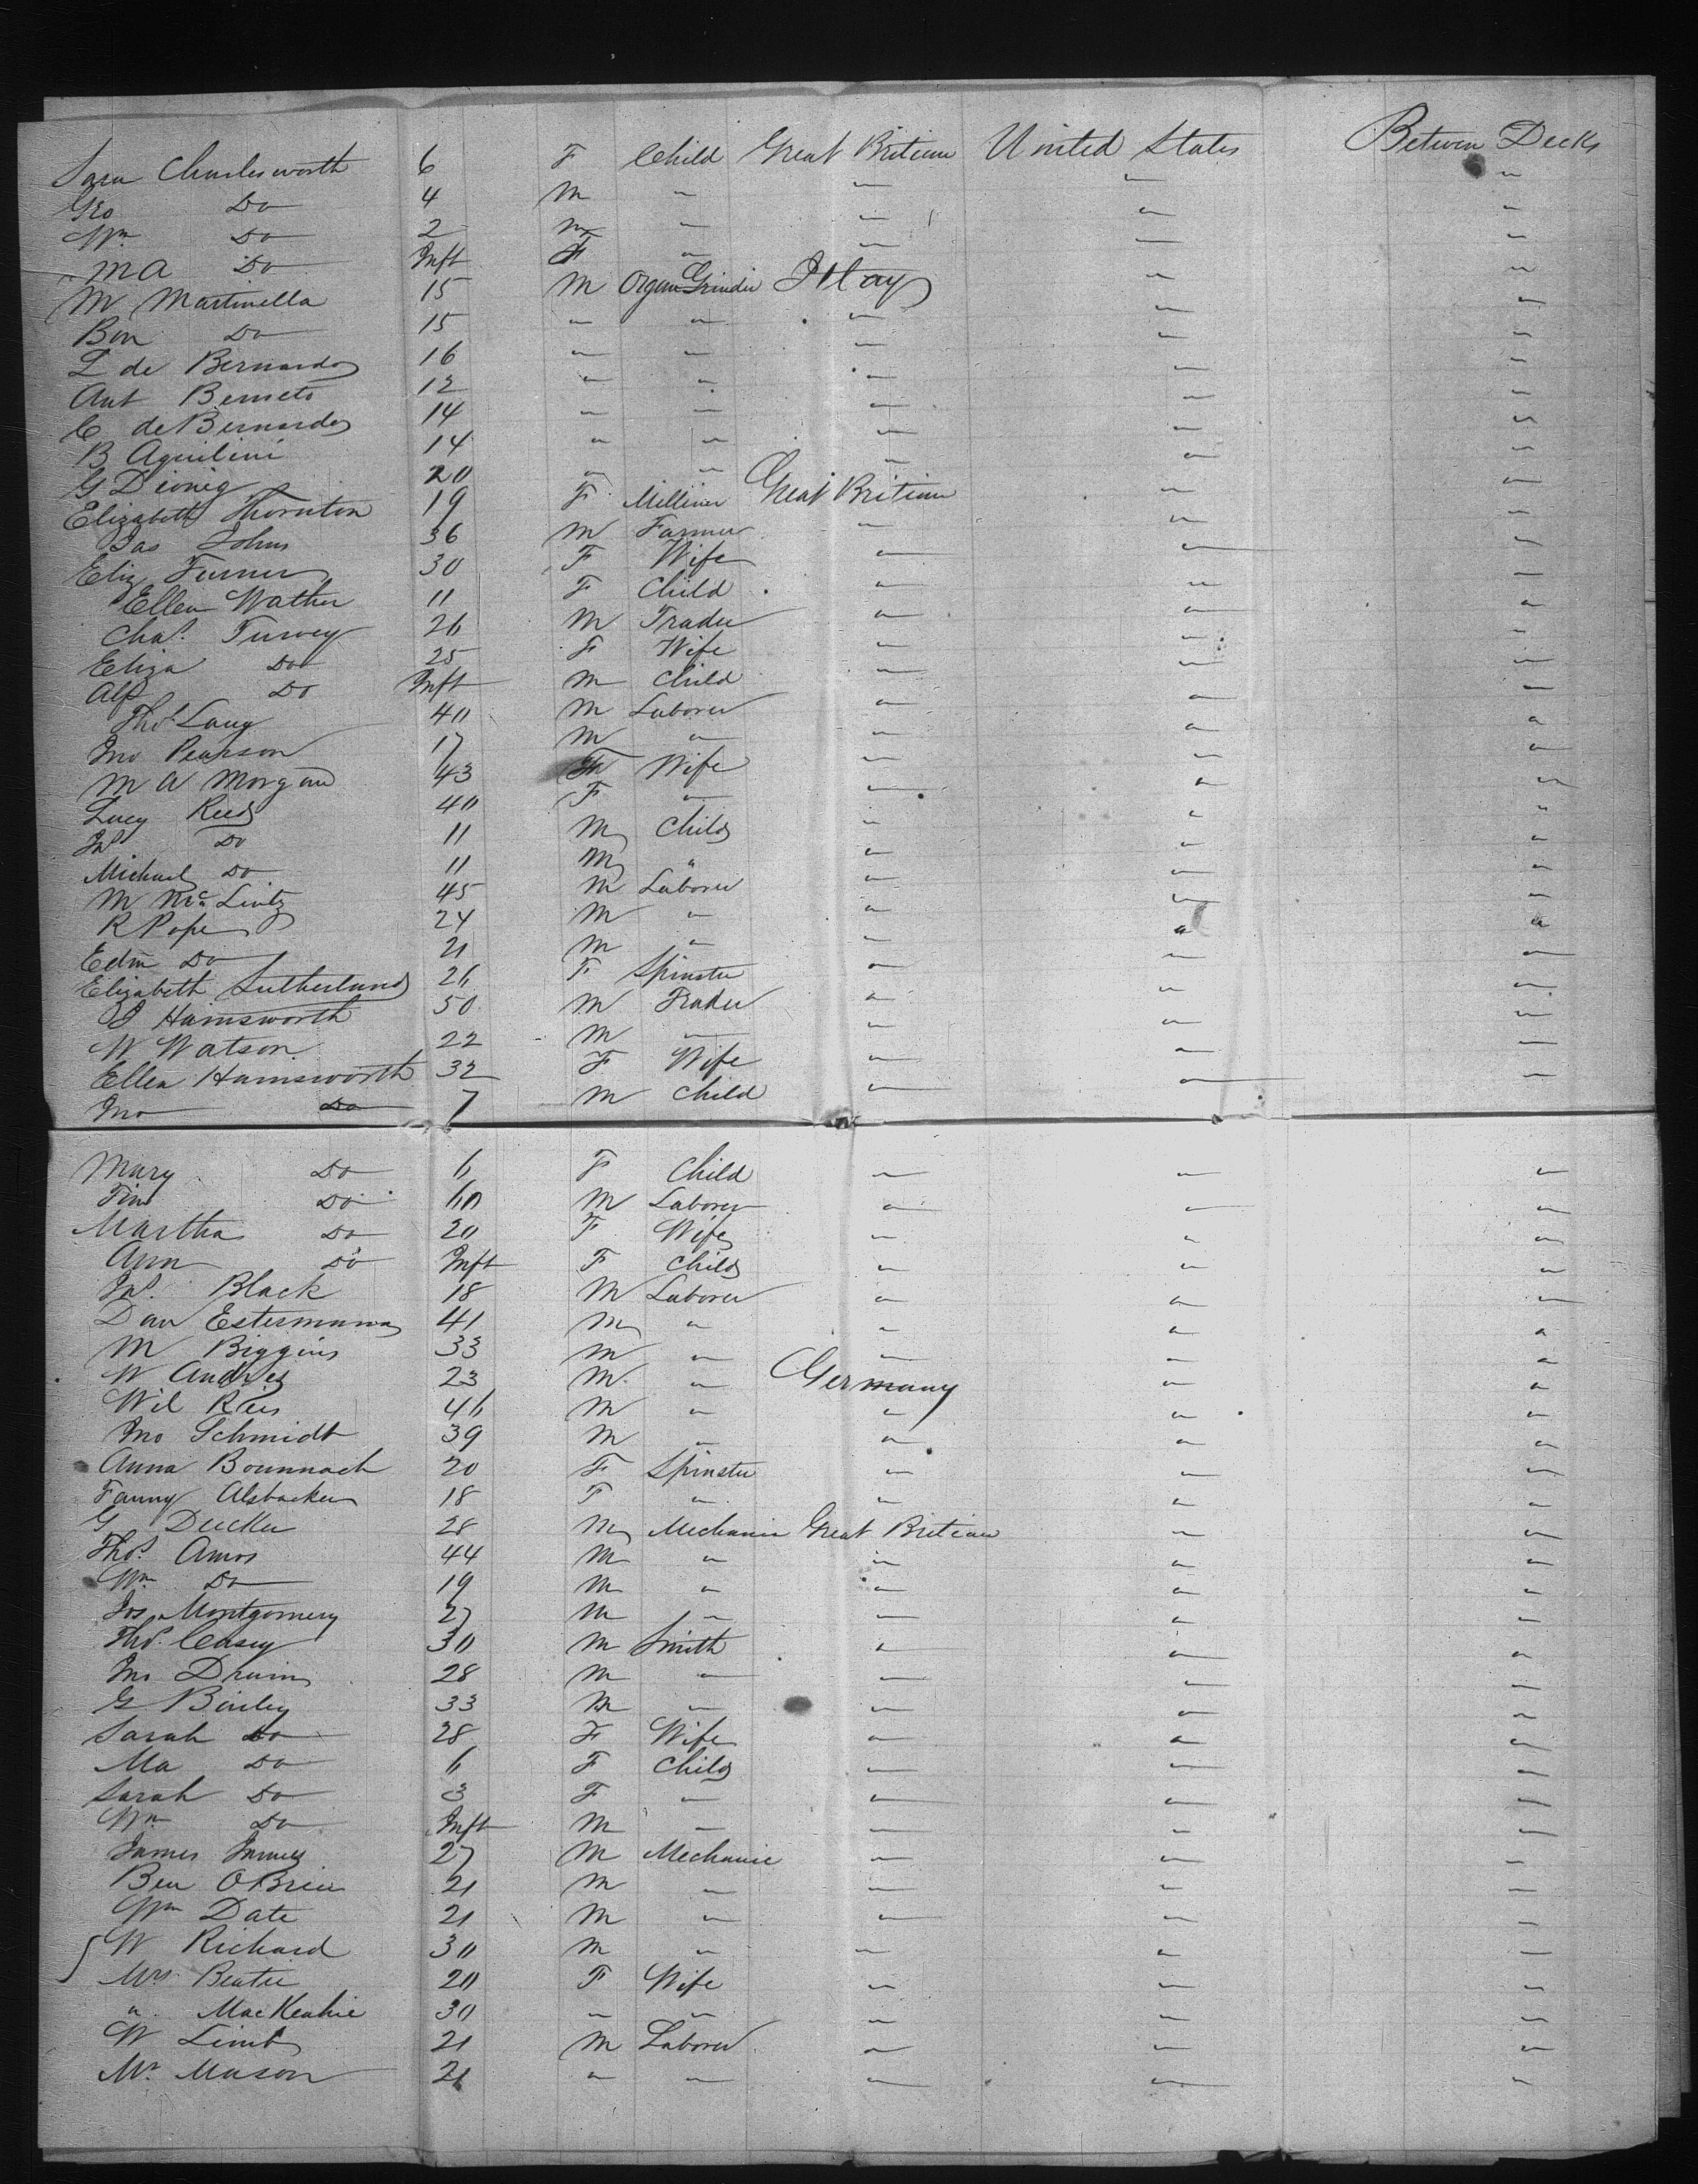 Sara Charlesworth 6 F Child Great Britian United States Between Decks
Geo Do 4 M " " " "
Wm Do 2 M " " " "
M A Do Inft F " " " "
M Martinella 15 M Organ Grinder Itlay " "
Bon Do 15 " " " " "
L de Bernardo 16 " " " " "
Ant Berneto 12 " " " " "
C de Bernardo 14 " " " " "
B Aquilini 14 " " " " "
G Dionig 20 " " " " "
Elizabeth Thornton 19 F Milliner Great Britian " "
Jas Johns 36 M Farmer " " "
Eliz Turner 30 F Wife " " "
Ellen Wather 11 F Child " " "
Chas. Turvey 26 M Trader " " "
Eliza Do 25 F Wife " " "
Alf Do Inft M Child " " "
Thos Lang 40 M Laborer " " "
Jno Pearson 17 M " " " "
M A Morgan 43 F Wife " " "
Lucy Reed 40 F " " " "
Jas Do 11 M Child " " "
Michael Do 11 M " " " "
M McLintz 45 M Laborer " " "
R Pope 24 M " " " "
Edm Do 21 M " " " "
Elizabeth Sutherland 26 F Spinster " " "
J Hamsworth 50 M Trader " " "
W Watson 22 M " " " "
Ellen Hamsworth 32 F Wife " " "
Jno Do 7 M Child " " "
Mary Do 6 F Child " " "
Tim Do 60 M Laborer " " "
Martha Do 20 F Wife " " "
Ann Do Inft F Child " " "
Jas. Black 18 M Laborer " " "
Dan Estermann 41 M " " " "
M Biggins 33 M " " " "
W Andres 23 M " Germany " "
Wil Rees 46 M " " " "
Jno Schmidt 39 M " " " "
Anna Bounnach 20 F Spinster " " "
Fanny Alsbacker 18 F " " " "
G Decker 28 M Mechanic Great Britian " "
Thos. Amos 44 M " " " "
Wm Do 19 M " " " "
Jos Montgomery 27 M " " " "
Thos. Casey 30 M Smith " " "
Jno Drum 28 M " " " "
G Bailey 33 M " " " "
Sarah Do 28 F Wife " " "
Ma Do 6 F Child " " "
Sarah Do 3 F " " " "
Wm Do Inft M " " " "
James 27 M Mechanic " " "
Ben OBrien 21 M " " " "
Wm Date 21 M " " " "
W Richard 30 M " " " "
Mrs Beatie 20 F Wife " " "
" MacKechie 30 " " " " "
W Limb 21 M Laborer " " "
Mr Mason 21 " " " " "